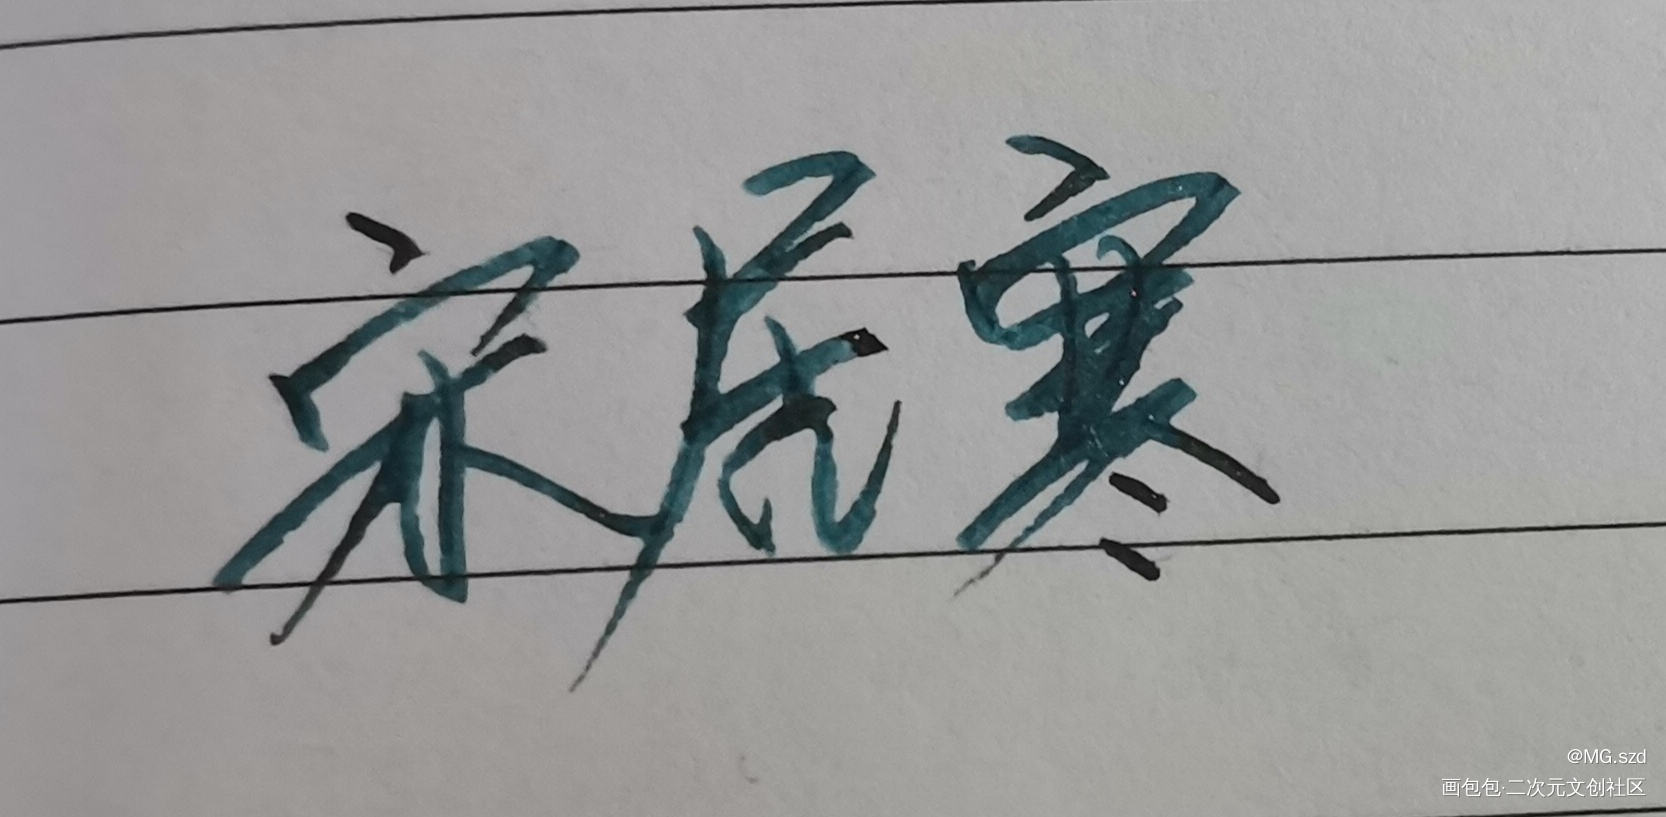 宋居寒
@MG.szd
画包包·二次元文创社区